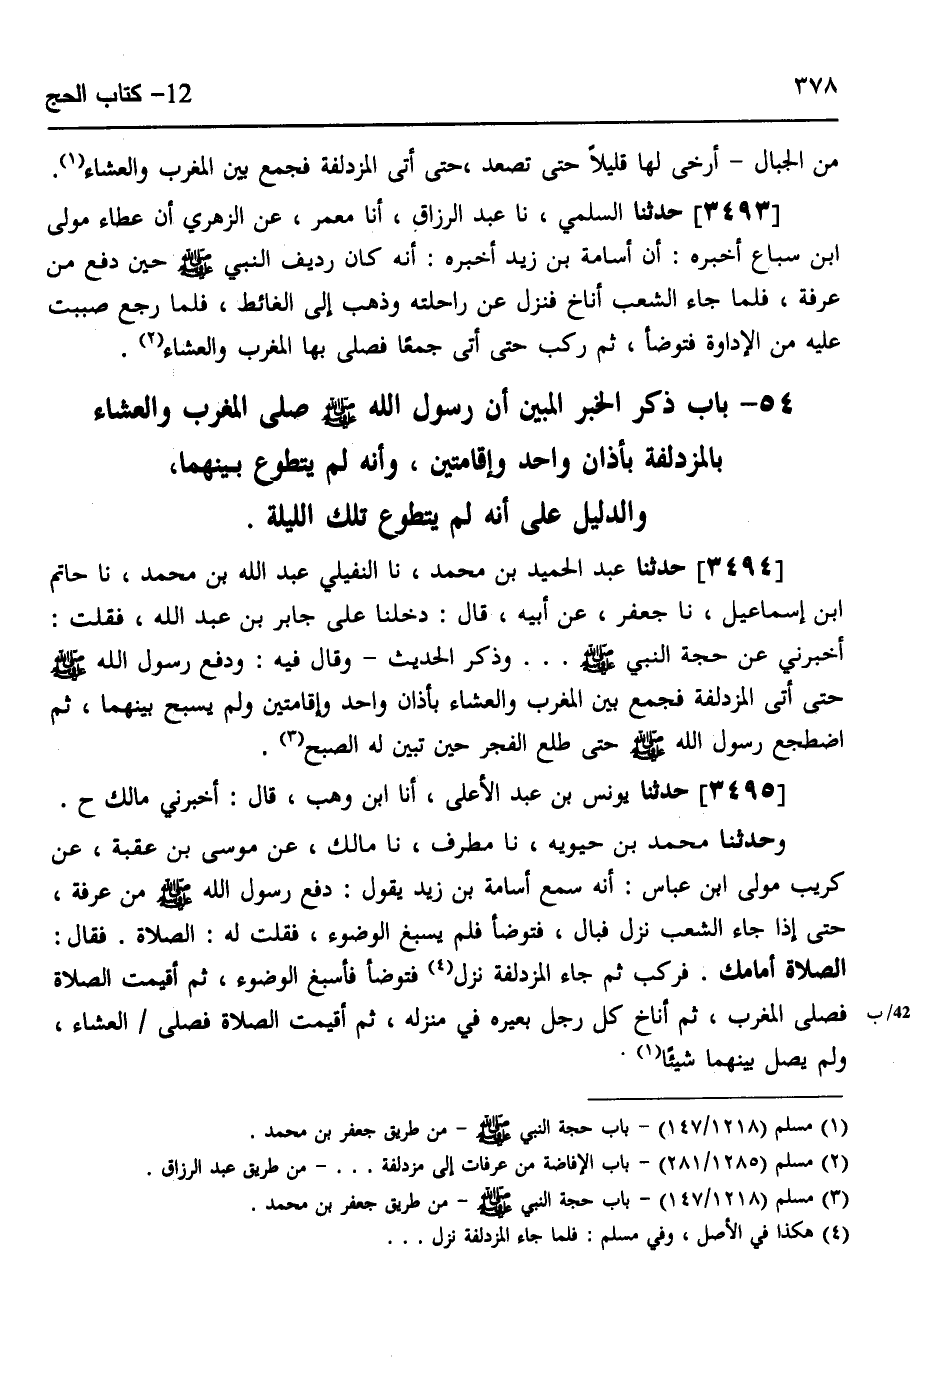 ٣٧٨
12- كتاب الحج
من الجبال - أرخى لها قليلاً حتى تصعد ،حتى أتى المزدلفة فجمع بين المغرب والعشاء(١).
[٣٤٩٣] حدثنا السلمي ، نا عبد الرزاق ، أنا معمر ، عن الزهري أن عطاء مولى
ابن سباع أخبره : أن أسامة بن زيد أخبره : أنه كان رديف النبي ﷺ حين دفع من
عرفة ، فلما جاء الشعب أناخ فنزل عن راحلته وذهب إلى الغائط ، فلما رجع صببت
عليه من الإداوة فتوضأ ، ثم ركب حتى أتى جمعًا فصلى بها المغرب والعشاء(٢) .
٥٤- باب ذكر الخبر المبين أن رسول الله ﷺ صلى المغرب والعشاء
بالمزدلفة بأذان واحد وإقامتين ، وأنه لم يتطوع بينهما،
والدليل على أنه لم يتطوع تلك الليلة .
[٣٤٩٤] حدثنا عبد الحميد بن محمد ، نا النفيلي عبد الله بن محمد ، نا حاتم
ابن إسماعيل ، نا جعفر ، عن أبيه ، قال : دخلنا على جابر بن عبد الله ، فقلت :
أخبرني عن حجة النبي ﷺ . . . وذكر الحديث - وقال فيه : ودفع رسول الله ﷺ
حتى أتى المزدلفة فجمع بين المغرب والعشاء بأذان واحد وإقامتين ولم يسبح بينهما ، ثم
اضطجع رسول الله ﷺ حتى طلع الفجر حين تبين له الصبح(٣) .
[٣٤٩٥] حدثنا يونس بن عبد الأعلى ، أنا ابن وهب ، قال : أخبرني مالك ح .
وحدثنا محمد بن حيويه ، نا مطرف ، نا مالك ، عن موسى بن عقبة ، عن
كريب مولى ابن عباس : أنه سمع أسامة بن زيد يقول : دفع رسول الله ﷺ من عرفة ،
حتى إذا جاء الشعب نزل فبال ، فتوضأ فلم يسبغ الوضوء ، فقلت له : الصلاة . فقال :
الصلاة أمامك . فركب ثم جاء المزدلفة نزل(٤) فتوضأ فأسبغ الوضوء ، ثم أقيمت الصلاة
فصلى المغرب ، ثم أناخ كل رجل بعيره في منزله ، ثم أقيمت الصلاة فصلى / العشاء ،
42/ب
ولم يصل بينهما شيئًا(١) .
(١) مسلم (١٤٧/١٢١٨) - باب حجة النبي ﷺ - من طريق جعفر بن محمد .
(٢) مسلم (٢٨١/١٢٨٥) - باب الإفاضة من عرفات إلى مزدلفة . . . - من طريق عبد الرزاق .
(٣) مسلم (١٤٧/١٢١٨) - باب حجة النبي ﷺ - من طريق جعفر بن محمد .
(٤) هكذا في الأصل ، وفي مسلم : فلما جاء المزدلفة نزل . . .